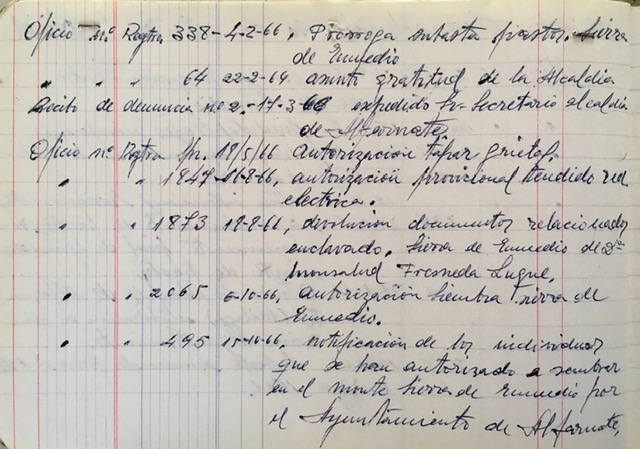 Oficio nº Regtro 338-4-2-66, Prorroga subasta pastos. Sierra
de Enmedio
" " 64 22-2-64 asunto gratitud de la Alcaldia
Recibo de denuncia nº 2.-17-3-66 expedido Sr. Secretario alcaldia
de Alfarnate,
Oficio nº Regtro 18/5/66 autorización tapar grietas.
" " 1847 -8-66, autorización provicional tendido red
electrica.
" " 1873 -8-66, devolución documentos relacionados
enclavado. Sierra de Enmedio de Dª
Monsalud Fresneda Luque,
" " 2065 6-10-66, autorización siembra Sierra de
Enmedio.
" " 495 15-10-66, notificación de los individuos
que se han autorizado a sembrar
en el monte Sierra de Enmedio por
el Ayuntamiento de Alfarnate,